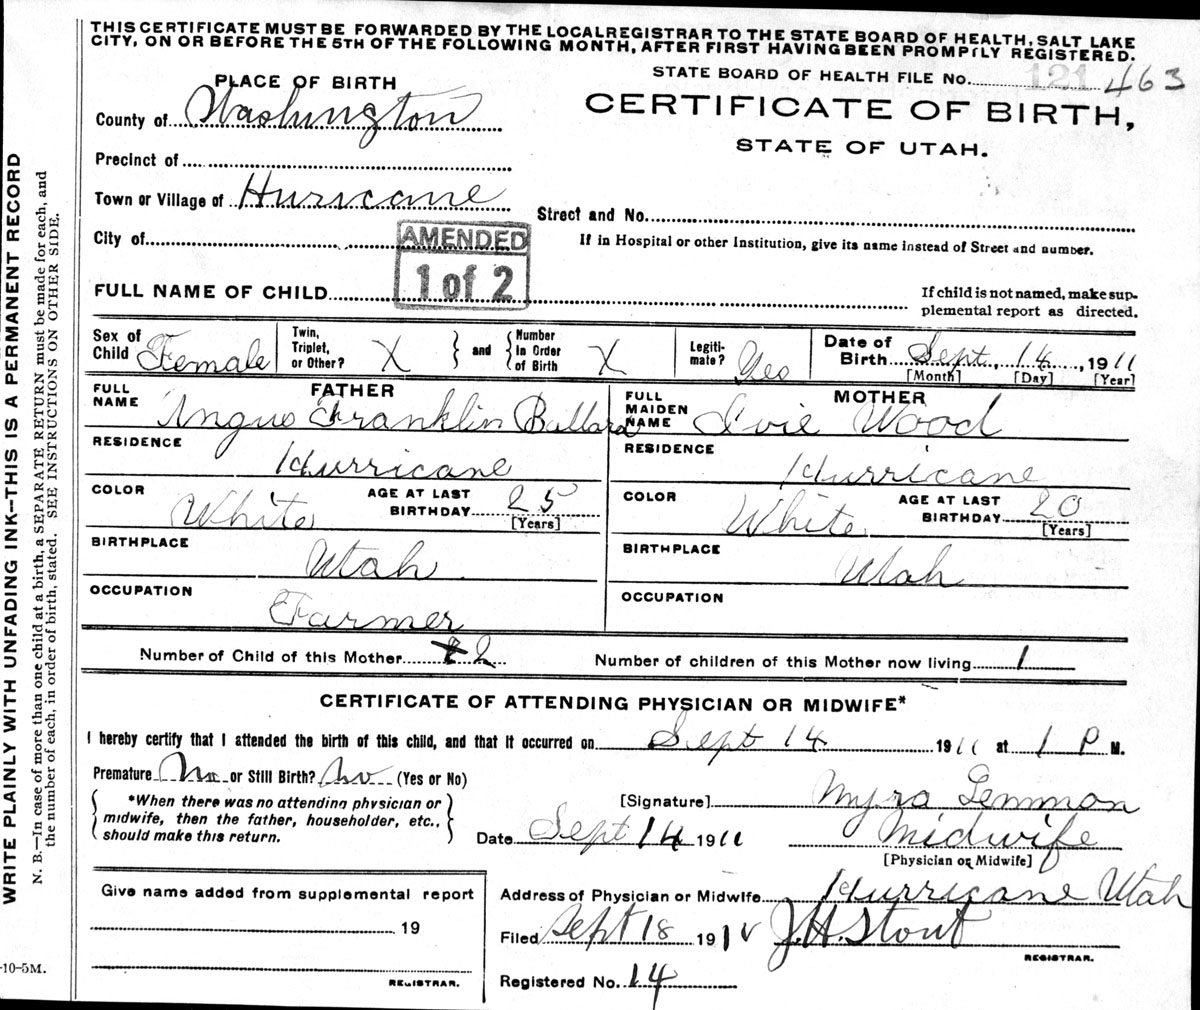 THIS CERTIFICATE MUST BE FORWARDED BY THE LOCAL REGISTRAR TO THE STATE BOARD OF HEALTH, SALT LAKE
CITY, ON OR BEFORE THE 5TH OF THE FOLLOWING MONTH, AFTER FIRST HAVING BEEN PROMPTLY REGISTERED.
STATE BOARD OF HEALTH FILE NO. 121 463
PLACE OF BIRTH
CERTIFICATE OF BIRTH,
STATE OF UTAH.
County of Washington
Precinct of
Town or Village of Huricane
Street and No.
City of
If in Hospital or other Institution, give its name instead of Street and number.
AMENDED
1 of 2
FULL NAME OF CHILD
If child is not named, make sup-
plemental report as directed.
Sex of Child Female
Twin, Triplet, or Other? X
and
Number in Order of Birth X
Legiti-mate? Yes
Date of Birth Sept. 14, 1911
[Month] [Day] [Year]
FATHER
FULL NAME Angus Franklin Ballard
RESIDENCE Hurricane
COLOR White
AGE AT LAST BIRTHDAY 25
[Years]
BIRTHPLACE Utah
OCCUPATION Farmer
MOTHER
FULL MAIDEN NAME Ivie Wood
RESIDENCE Hurricane
COLOR White
AGE AT LAST BIRTHDAY 20
[Years]
BIRTHPLACE Utah
OCCUPATION
Number of Child of this Mother 2
Number of children of this Mother now living 1
CERTIFICATE OF ATTENDING PHYSICIAN OR MIDWIFE*
I hereby certify that I attended the birth of this child, and that it occurred on Sept 14 1911 at 1 P M.
Premature No or Still Birth? No (Yes or No)
*When there was no attending physician or
midwife, then the father, householder, etc.,
should make this return.
[Signature] Myra Lemmon
Date Sept 14 1911
Midwife
[Physician or Midwife]
Give name added from supplemental report
19
REGISTRAR.
Address of Physician or Midwife Hurricane Utah
Filed Sept 18 191 J.H. Stout
REGISTRAR.
Registered No. 14
WRITE PLAINLY WITH UNFADING INK--THIS IS A PERMANENT RECORD
N. B.—In case of more than one child at a birth, a SEPARATE RETURN must be made for each, and
the number of each, in order of birth, stated. SEE INSTRUCTIONS ON OTHER SIDE.
-10-5M.